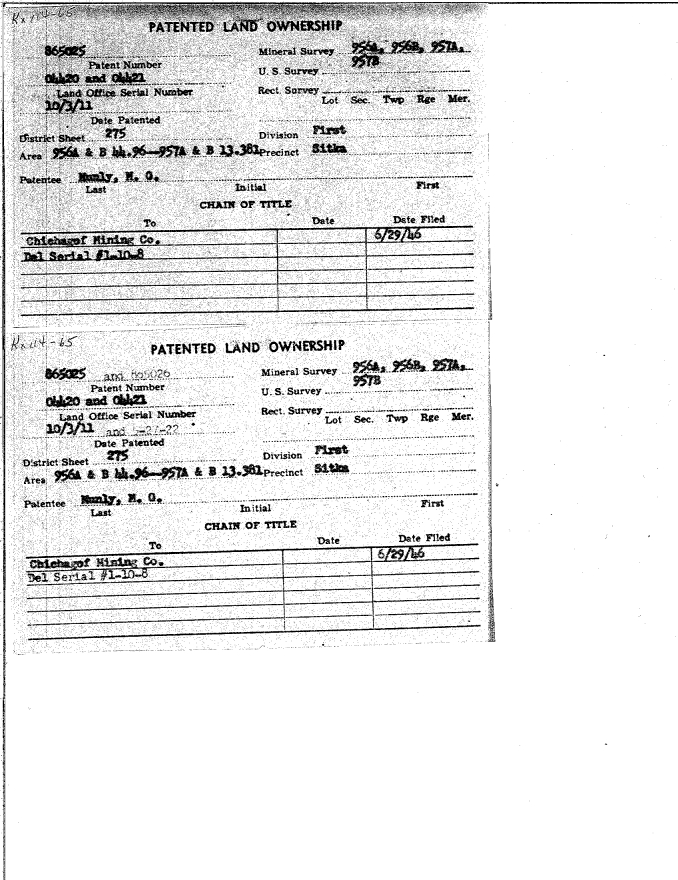 Kx 114-65
PATENTED LAND OWNERSHIP
865025
Mineral Survey 956A, 956B, 957A,
957B
Patent Number
04420 and 04421
U. S. Survey
Land Office Serial Number
Rect. Survey
Lot Sec. Twp Rge Mer.
10/3/11
Date Patented
District Sheet 275
Division First
Area 956A & B 44.96--957A & B 13.381 Precinct Sitka
Patentee Munly, M. O.
Last Initial First
CHAIN OF TITLE
To Date Date Filed
Chichagof Mining Co. 6/29/46
Del Serial #1-10-8
Kx 114-65
PATENTED LAND OWNERSHIP
865025 and 865026
Mineral Survey 956A, 956B, 957A,
957B
Patent Number
04420 and 04421
U. S. Survey
Land Office Serial Number
Rect. Survey
Lot Sec. Twp Rge Mer.
10/3/11 and
Date Patented
District Sheet 275
Division First
Area 956A & B 44.96--957A & B 13.381 Precinct Sitka
Patentee Munly, M. O.
Last Initial First
CHAIN OF TITLE
To Date Date Filed
Chichagof Mining Co. 6/29/46
Del Serial #1-10-8